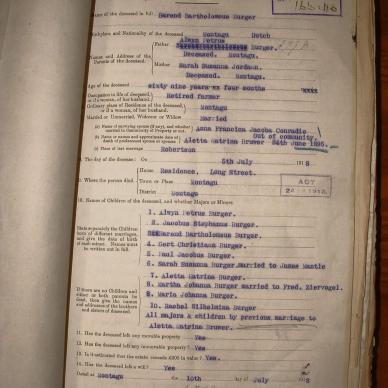 Name of the deceased in full Barend Bartholomeus Burger
Birthplace and Nationality of the deceased Montagu Dutch
Names and Address of the Parents of the deceased.
Father Alwyn Petrus
Burger.
Deceased. Montagu.
Mother Sarah Susanna Jordaan.
Deceased. Montagu.
Age of the deceased Sixty nine years xx four months xxxx
Occupation in life of deceased, or if a woman, of her husband. Retired Farmer
Ordinary place of Residence of the deceased, or if a woman, of her husband. Montagu
Married or Unmarried, Widower or Widow Married
(a) Name of surviving spouse (if any), and whether married in Community of Property or not. Anna Francina Jacoba Conradie
Out of community.
(b) Name or names and approximate date of death of predeceased spouse or spouses Aletta Catrina Bruwer 24th June 1895.
(c) Place of last marriage Robertson
8. The day of the decease: On 5th July 1918
9. Where the person died.
House Residence, Long Street.
Town or Place Montagu
District Montagu
ACT
10. Names of Children of the deceased, and whether Majors or Minors
State separately the Children born of different marriages, and give the date of birth of each minor. Names must be written in full.
1. Alwyn Petrus Burger.
2. Jacobus Stephanus Burger.
Barend Bartholomeus Burger.
4. Gert Christiaan Burger.
5. Paul Jacobus Burger.
6. Sarah Susanna Burger married to James Mantle
7. Aletta Catrina Burger.
8. Martha Johanna Burger married to Fred. Ziervogel.
9. Maria Johanna Burger.
10. Rachel Wilhelmina Burger
All majors & children by previous marriage to
Aletta Catrina Bruwer.
If there are no Children and either or both parents be dead, then give the names and addresses of the brothers and sisters of deceased.
11. Has the deceased left any movable property Yes
12. Has the deceased left any immovable property? Yes
13. Is it estimated that the estate exceeds £300 in value? Yes.
14. Has the deceased left a will? Yes
Dated at Montagu on 10th day of July 1918